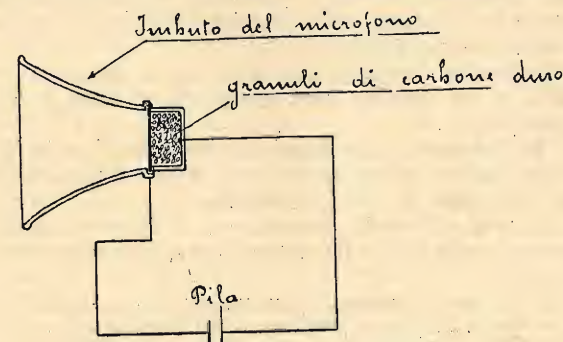 Imbuto del microfono
granuli di carbone duro
Pila